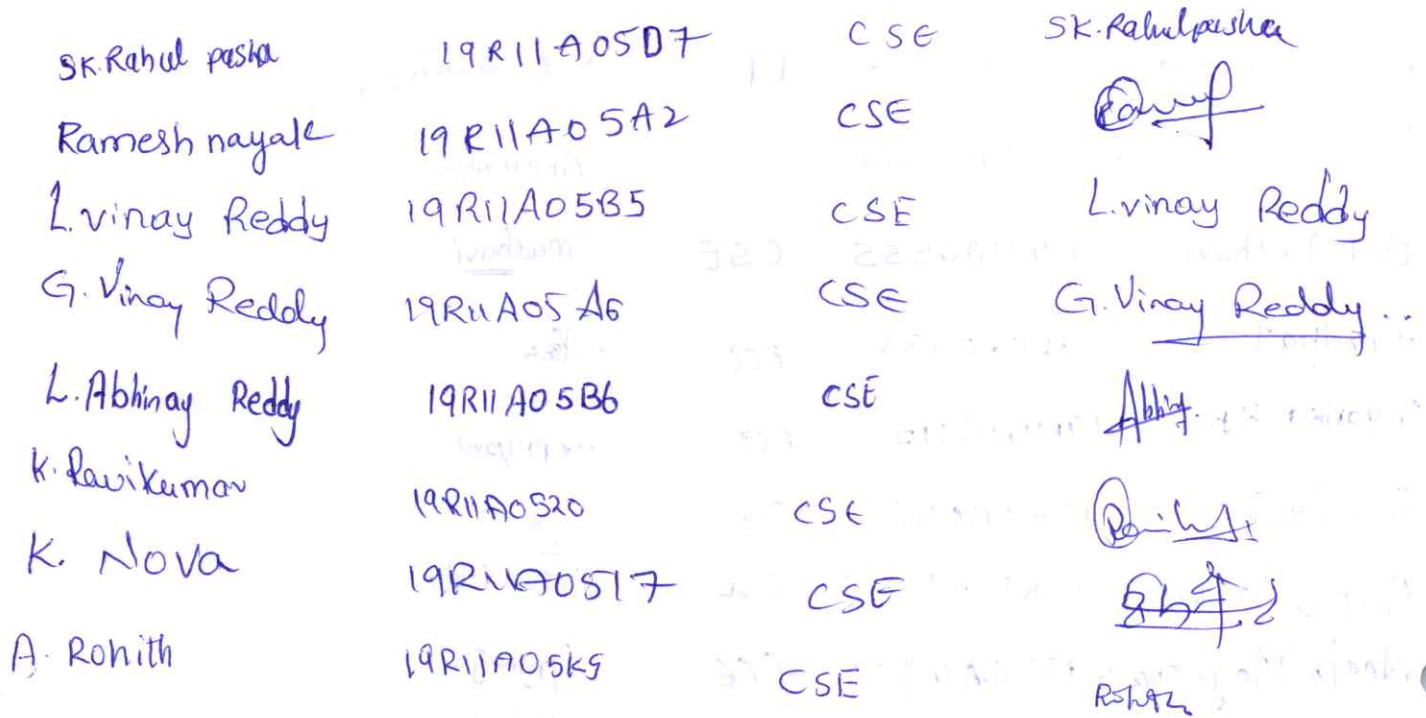 SK.Rahul pasha 19R11A05D7 CSE SK.Rahulpasha
Ramesh nayak 19R11A05A2 CSE
L.vinay Reddy 19R11A05B5 CSE L.vinay Reddy
G.Vinay Reddy 19R11A05A6 CSE G.Vinay Reddy..
L.Abhinay Reddy 19R11A05B6 CSE Abhinay.
K.Ravikumar 19R11A0520 CSE
K. Nova 19R11A0517 CSE
A. Rohith 19R11A05K9 CSE Rohith